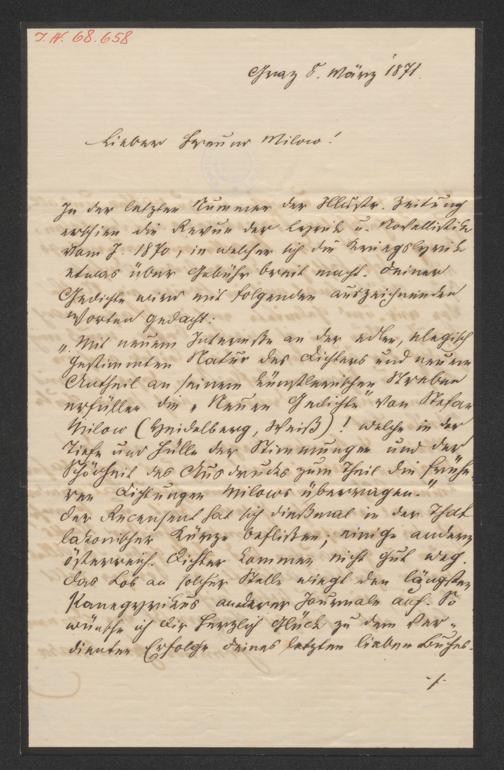 I. N. 68.658
Graz 8. März 1871.
Lieber Freund Milow!
In der letzten Nummer der Illustr. Zeitung
erschien die Revue der Lyrik u. Novellistik
vom J. 1870, in welcher sich die Kriegslyrik
etwas über Gebühr breit macht. Deiner
Gedichte wird mit folgenden auszeichnenden
Worten gedacht:
„Mit neuem Interesse an der edlen, elegisch
gestimmten Natur des Dichters und neuem
Antheil an seinem künstlerischen Streben
erfüllen die „Neuen Gedichte" von Stefan
Milow (Heidelberg, Weiß)! welche in der
Tiefe und Fülle der Stimmungen und der
Schönheit des Ausdrucks zum Theil die frühe-
ren Dichtungen Milows überragen."
Der Recensent hat sich dießmal in der That
lakonischer Kürze beflissen; einige andere
österreich. Dichter kommen nicht gut weg.
Das Lob an solcher Stelle wiegt den längsten
Panegyrikus anderer Journale auf. So
wünsche ich Dir herzlich Glück zu dem ver-
dienten Erfolge deines letzten lieben Buches.
./.